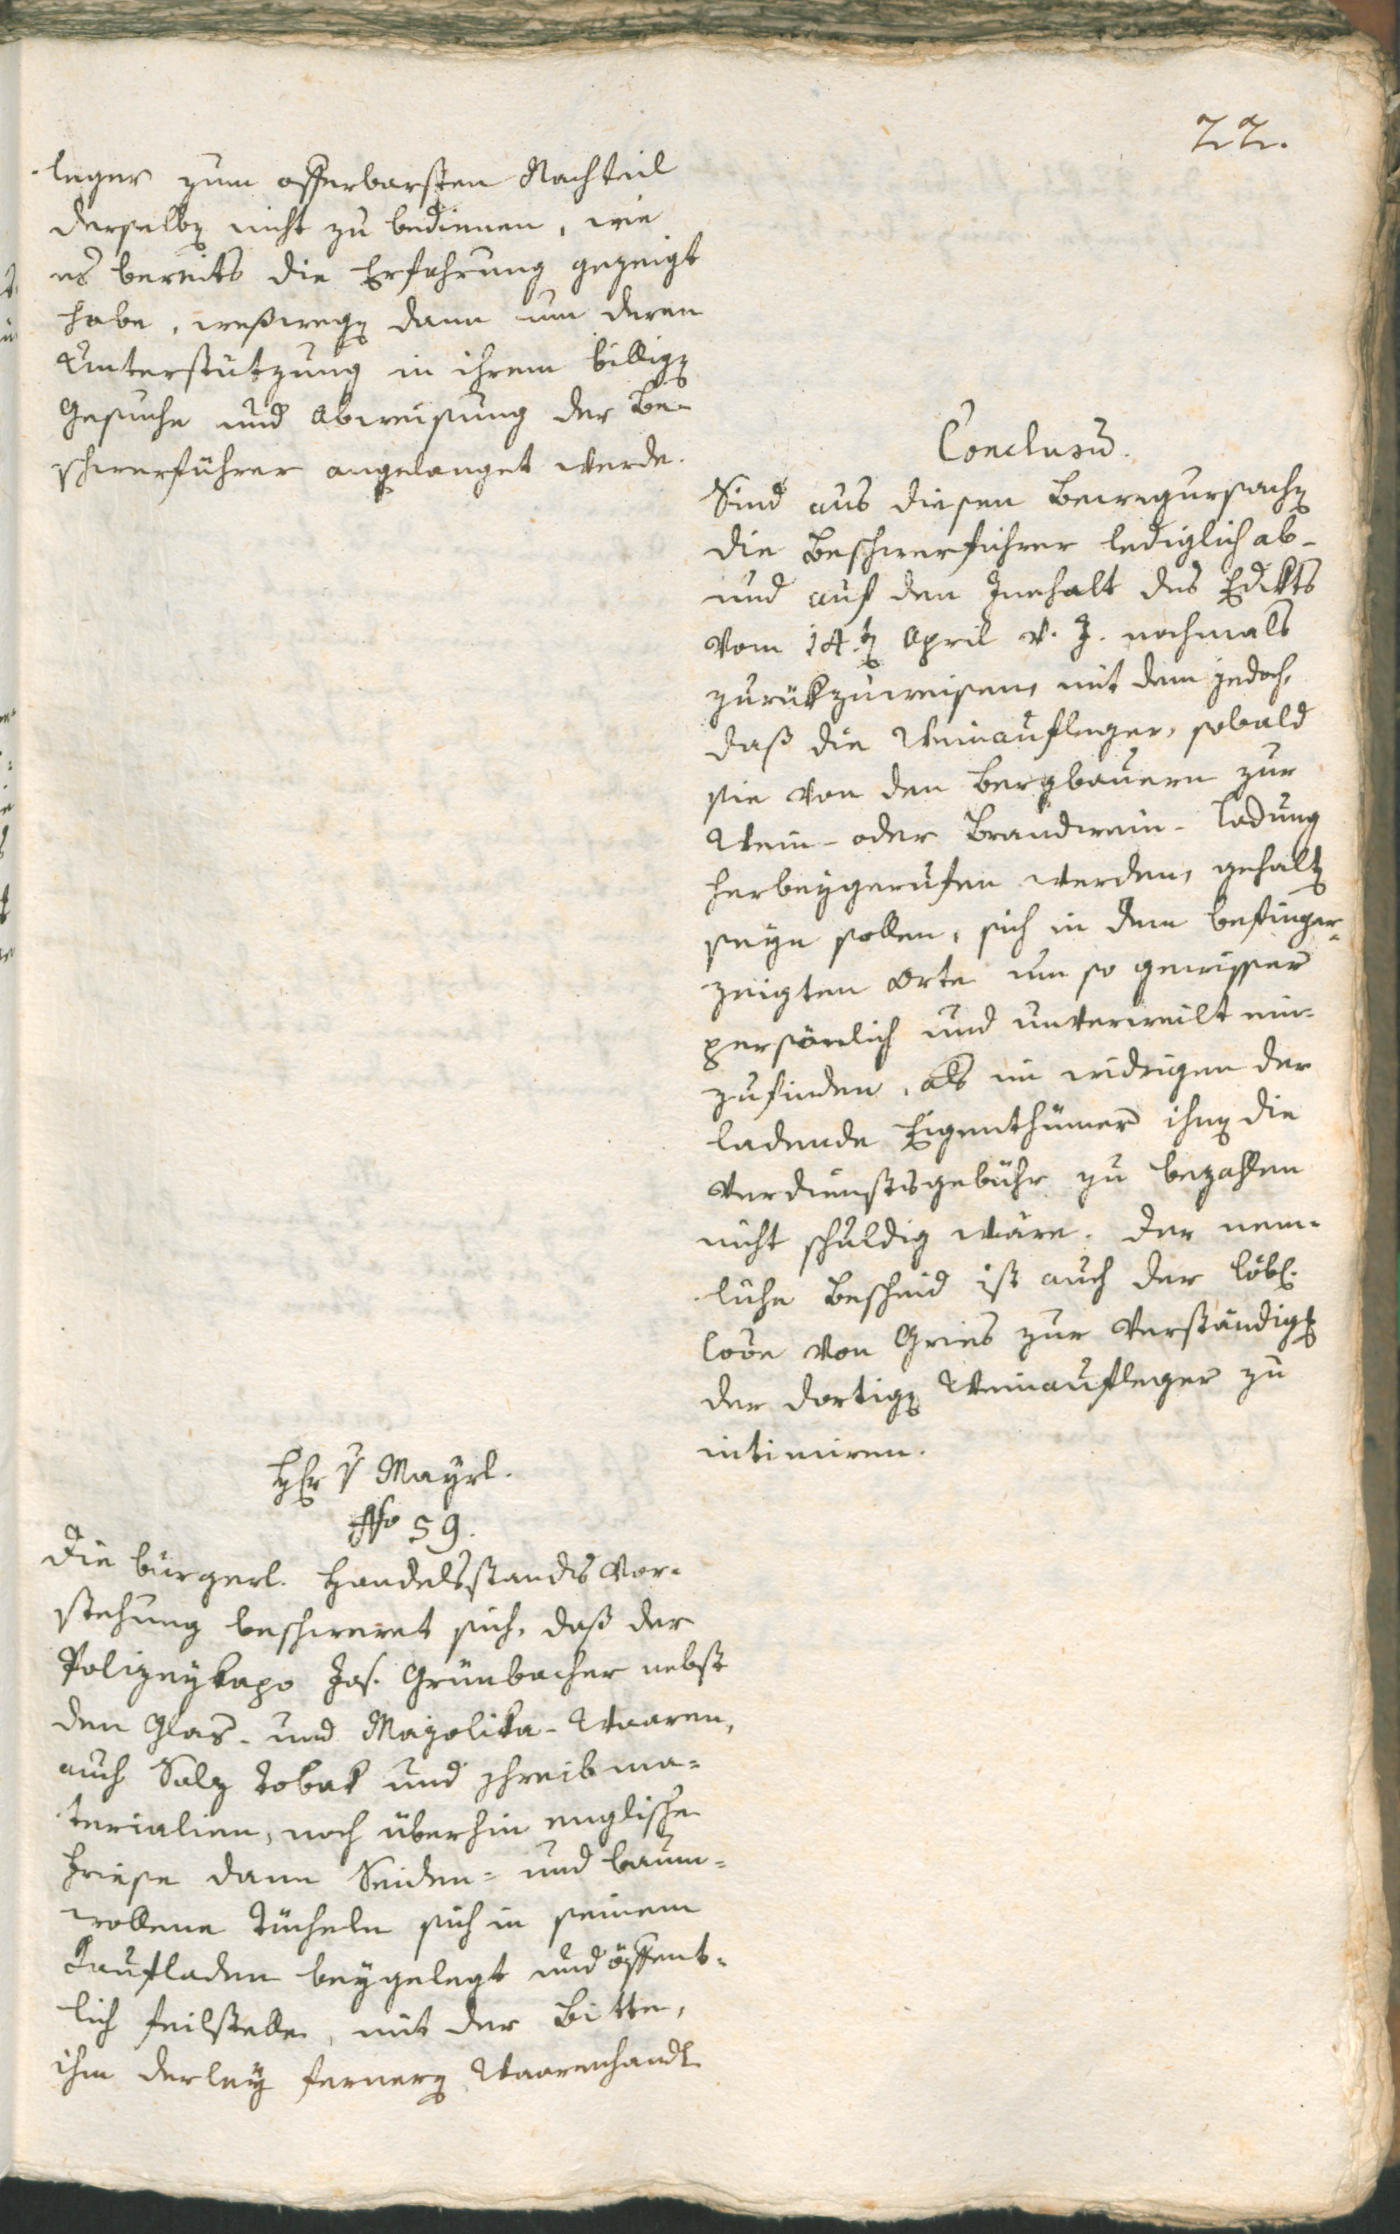 22.
leger zum offenbarsten Nachteil
derselbꝫ nicht zu bedienen, wie
es bereits die Erfahrung gezeigt
habe, weßwegꝫ dann um deren
Unterstützung in ihrem billigꝫ
Gesuche und Abweisung der Be-
schwerführer angelanget werde.
Conclusũ.
Sind aus diesen Bewegursachꝫ
die Beschwerführer lediglich ab-
und auf den Innhalt des Edikts
vom 14.tꝫ April v. J. nochmals
zurükzuweisen, mit dem jedoch,
daß die Weinaufleger, sobald
sie von den Bergbauern zur
Wein- oder Brandwein-Ladung
herbeygerufen werden, gehaltꝫ
seyn sollen, sich in dem
zeigten Orte um so gewisser
persönlich und unverweilt ein-
zufinden, als im widrigen der
ladende Eigenthümer ihnꝫ die
Verdienstsgebühr zu bezahlen
nicht schuldig wäre. Der nem-
liche Bescheid ist auch der löbl.
von Gries zur Verständigꝫ
der dortigꝫ Weinaufleger zu
intimiren.
Hr v Mayrl.
No 59.
Die bürgerl. Handelsstands Vor-
stehung beschweret sich, daß der
Polizeykapo Jos. Grünbacher nebst
den Glas- und Majolika-Waaren,
auch Salz Tobak und schreibma-
terialien, noch überhin englische
dann Seiden- und baum-
wollene Tücheln sich in seinem
Kaufladen beygelegt und öffent-
lich feilstelle, mit der Bitte,
ihm derley fernerꝫ Waarenhandl